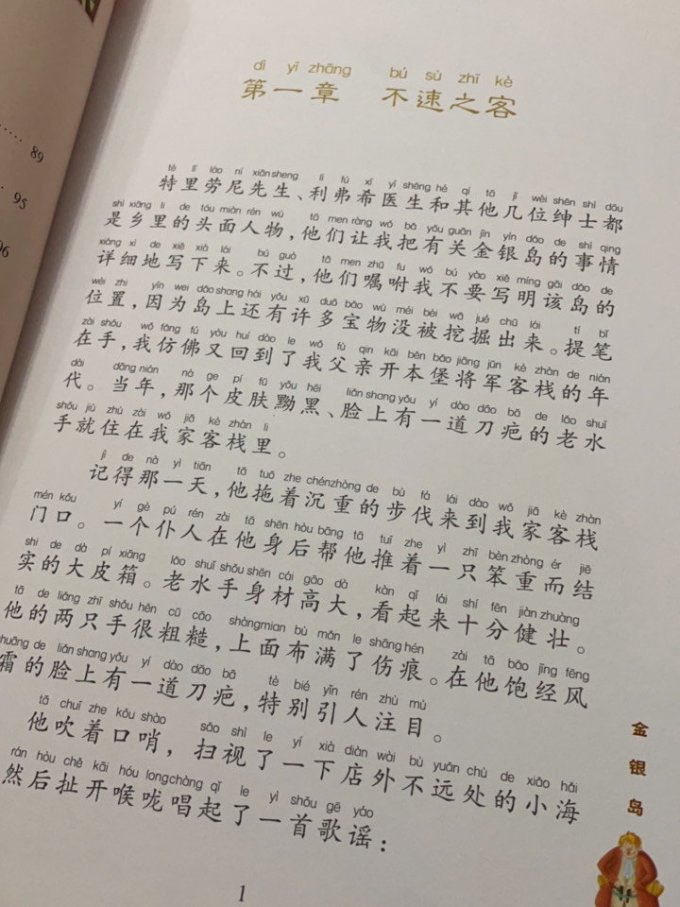 89
95
96
dì yī zhāng bú sù zhī kè
第一章 不速之客
tè lǐ láo ní xiān sheng lì fú xī yī shēng hé qí tā jǐ wèi shēn shì dōu
特里劳尼先生、利弗希医生和其他几位绅士都
shì xiāng lǐ de tóu miàn rén wù tā men ràng wǒ bǎ yǒu guān jīn yín dǎo de shì qing
是乡里的头面人物，他们让我把有关金银岛的事情
xiáng xì de xiě xià lái bú guò tā men zhǔ fu wǒ bú yào xiě míng gāi dǎo de
详细地写下来。不过，他们嘱咐我不要写明该岛的
wèi zhi yīn wei dǎo shang hái yǒu xǔ duō bǎo wù méi bèi wā jué chū lái tí bǐ
位置，因为岛上还有许多宝物没被挖掘出来。提笔
zài shǒu wǒ fǎng fú yòu huí dào le wǒ fù qin kāi běn bǎo jiāng jūn kè zhàn de nián
在手，我仿佛又回到了我父亲开本堡将军客栈的年
dài dāng nián nà ge pí fū yǒu hēi liǎn shang yǒu yí dào dāo bā de lǎo shuǐ
代。当年，那个皮肤黝黑、脸上有一道刀疤的老水
shǒu jiù zhù zài wǒ jiā kè zhàn li
手就住在我家客栈里。
jì de nà yì tiān tā tuō zhe chén zhòng de bù fá lái dào wǒ jiā kè zhàn
记得那一天，他拖着沉重的步伐来到我家客栈
mén kǒu yí gè pú rén zài tā shēn hòu bāng tā tuī zhe yì zhī bèn zhòng ér jiē
门口。一个仆人在他身后帮他推着一只笨重而结
shi de dà pí xiāng lǎo shuǐ shǒu shēn cái gāo dà kàn qǐ lái shí fēn jiàn zhuàng
实的大皮箱。老水手身材高大，看起来十分健壮。
tā de liǎng zhī shǒu hěn cū cāo shàng mian bù mǎn le shāng hén zài tā bǎo jīng fēng
他的两只手很粗糙，上面布满了伤痕。在他饱经风
shuāng de liǎn shang yǒu yí dào dāo bā tè bié yǐn rén zhù mù
霜的脸上有一道刀疤，特别引人注目。
tā chuī zhe kǒu shào sǎo shì le yí xià diàn wài bù yuǎn chù de xiǎo hǎi
他吹着口哨，扫视了一下店外不远处的小海
rán hòu chě kāi hóu long chàng qǐ le yì shǒu gē yáo
然后扯开喉咙唱起了一首歌谣：
金银岛
1